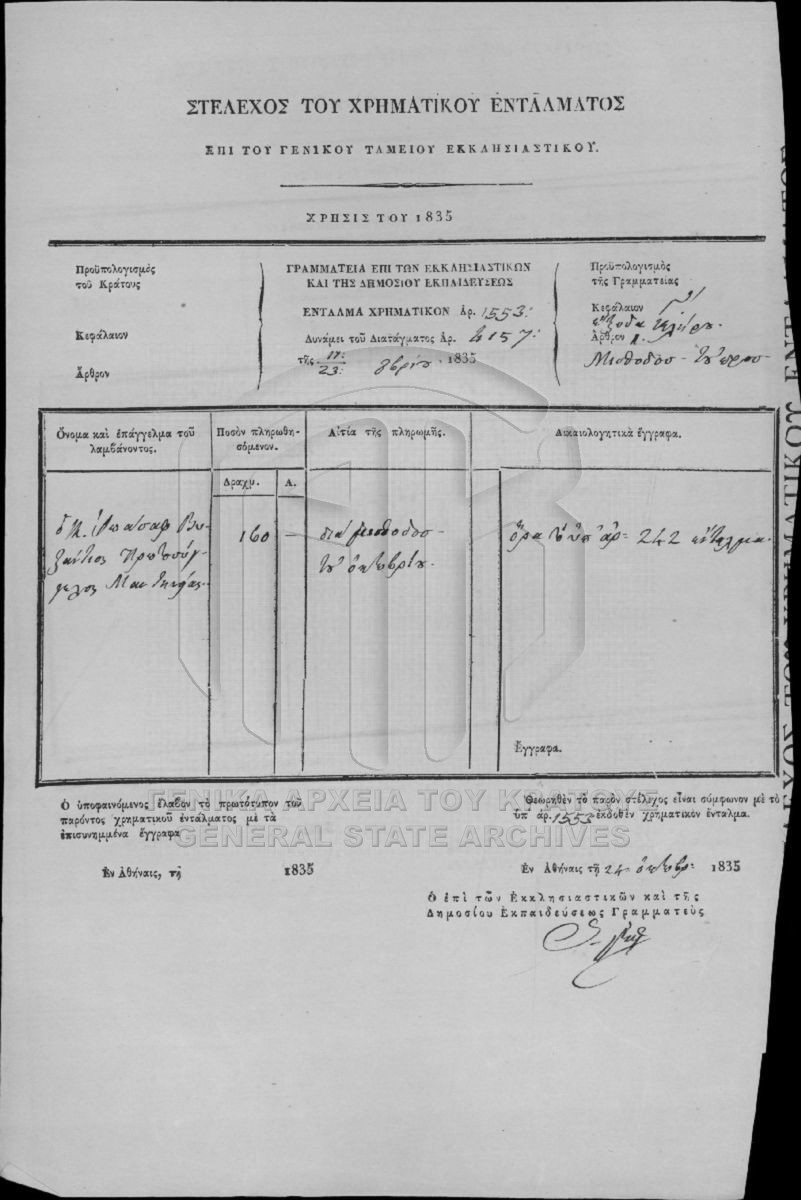 ΣΤΕΛΕΧΟΣ ΤΟΥ ΧΡΗΜΑΤΙΚΟΥ ΕΝΤΑΛΜΑΤΟΣ
ΕΠΙ ΤΟΥ ΓΕΝΙΚΟΥ ΤΑΜΕΙΟΥ ΕΚΚΛΗΣΙΑΣΤΙΚΟΥ.
ΧΡΗΣΙΣ ΤΟΥ 1835
Προϋπολογισμὸς
τοῦ Κράτους
Κεφάλαιον
Ἄρθρον
ΓΡΑΜΜΑΤΕΙΑ ΕΠΙ ΤΩΝ ΕΚΚΛΗΣΙΑΣΤΙΚΩΝ
ΚΑΙ ΤΗΣ ΔΗΜΟΣΙΟΥ ΕΚΠΑΙΔΕΥΣΕΩΣ
ΕΝΤΑΛΜΑ ΧΡΗΜΑΤΙΚΟΝ Ἀρ. 1553:
Δυνάμει τοῦ Διατάγματος Ἀρ. 4157:
τῆς 11:/23: 1835
Προϋπολογισμὸς
τῆς Γραμματείας
Κεφάλαιον Γ'
ἔξοδα κλήρου.
Ἄρθρον 1.
Μισθοδοσ-
Ὄνομα καὶ ἐπάγγελμα τοῦ
λαμβάνοντος.
Ποσὸν πληρωθη-
σόμενον.
Αἰτία τῆς πληρωμῆς.
Δικαιολογητικὰ ἔγγραφα.
Δραχμ. Λ.
160 —
διὰ μισθοδοσ-
τοῦ ὀκτωβρίου.
ὅρα τὸ ὑπ' ἀρ= 242 ἔνταλμα.
Ἔγγραφα.
ΓΕΝΙΚΑ ΑΡΧΕΙΑ ΤΟΥ ΚΡΑΤΟΥΣ
GENERAL STATE ARCHIVES
Ὁ ὑποφαινόμενος ἔλαβον τὸ πρωτότυπον τοῦ
παρόντος χρηματικοῦ ἐντάλματος μὲ τὰ
ἐπισυνημμένα ἔγγραφα
Ἐν Ἀθήναις, τῇ 1835
Θεωρηθὲν τὸ παρὸν στέλεχος εἶναι σύμφωνον μὲ τὸ
ὑπ ἀρ. 1553 ἐκδοθὲν χρηματικὸν ἔνταλμα.
Ἐν Ἀθήναις τῇ 24 ὀκτωβρ. 1835
Ὁ ἐπὶ τῶν Ἐκκλησιαστικῶν καὶ τῆς
Δημοσίου Ἐκπαιδεύσεως Γραμματεὺς